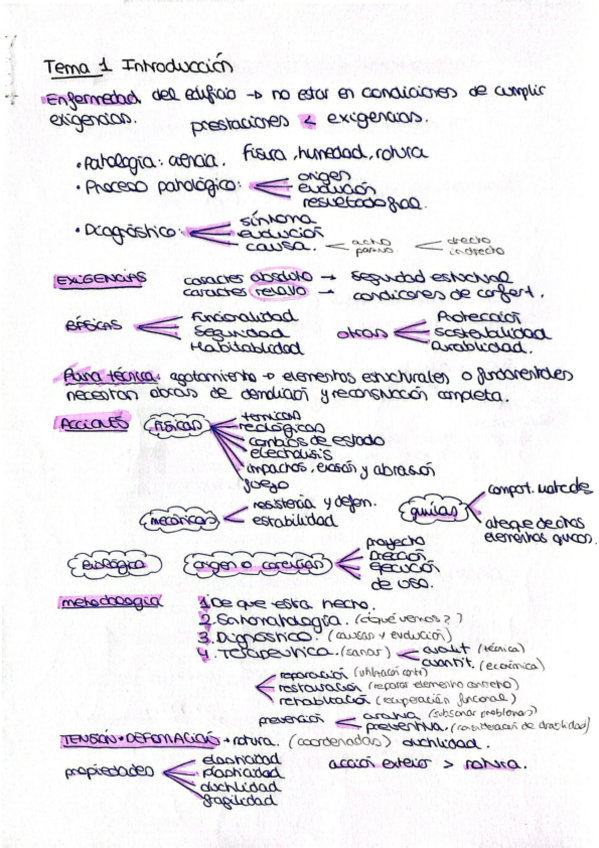 Tema 1 Introducción
Enfermedad del edificio → no estar en condiciones de cumplir
exigencias. prestaciones < exigencias.
• Patología: ciencia. fisura, humedad, rotura
• Proceso patológico: origen
evolución
resultado final.
• Diagnóstico: síntoma
evolución
causa. acto directo
indirecto
EXIGENCIAS caracter absoluto → seguridad estructural
caracter relativo → condiciones de confort.
BÁSICAS Funcionalidad
Seguridad
Habitabilidad
otras Protección
Sostenibilidad
Durabilidad.
Ruina técnica: agotamiento → elementos estructurales o fundamentales
necesitan obras de demolición y reconstrucción completa.
ACCIONES físicas térmicas
reológicas
cambios de estado
electrolisis
impactos, erosión y abrasión
fuego
mecánicas resistencia y defom.
estabilidad
químicas compot. materiales
ataque de otros
elementos quimicos.
Biológica origen o carencias proyecto
dirección
ejecución
de uso.
metodología 1. De que esta hecho.
2. Sintomatología. (¿qué vemos?)
3. Diagnóstico. (causas y evolución)
4. Terapeutica. (sanar) cualit (técnica)
cuantit. (económica)
reparación (utilización contr)
restauración (reparar elemento concreto)
rehabilitación (recuperación funcional)
prevención (subsanar problemas)
preventiva.
TENSIÓN + DEFORMACIÓN + rotura. (coordenadas) ductilidad.
propiedades elasticidad
plasticidad
ductilidad
fragilidad
acción exterior > rotura.